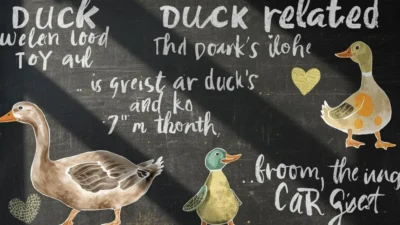 DUCK
DUCK related
welen lood
Toy aul
Thd poark's ilohe
.. is greist ar duck's
and ko
7"m thonth,
..froom, the ung
CaR Gisest